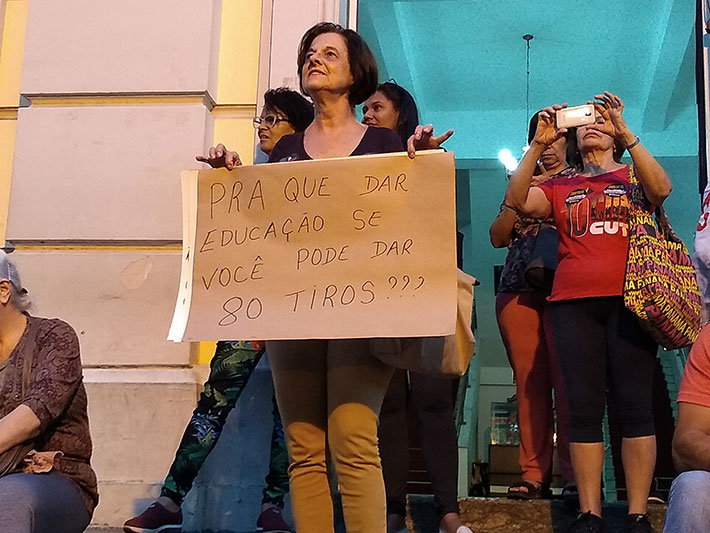 PRA QUE DAR
EDUCAÇÃO SE
VOCÊ PODE DAR
80 TIROS???
CUT